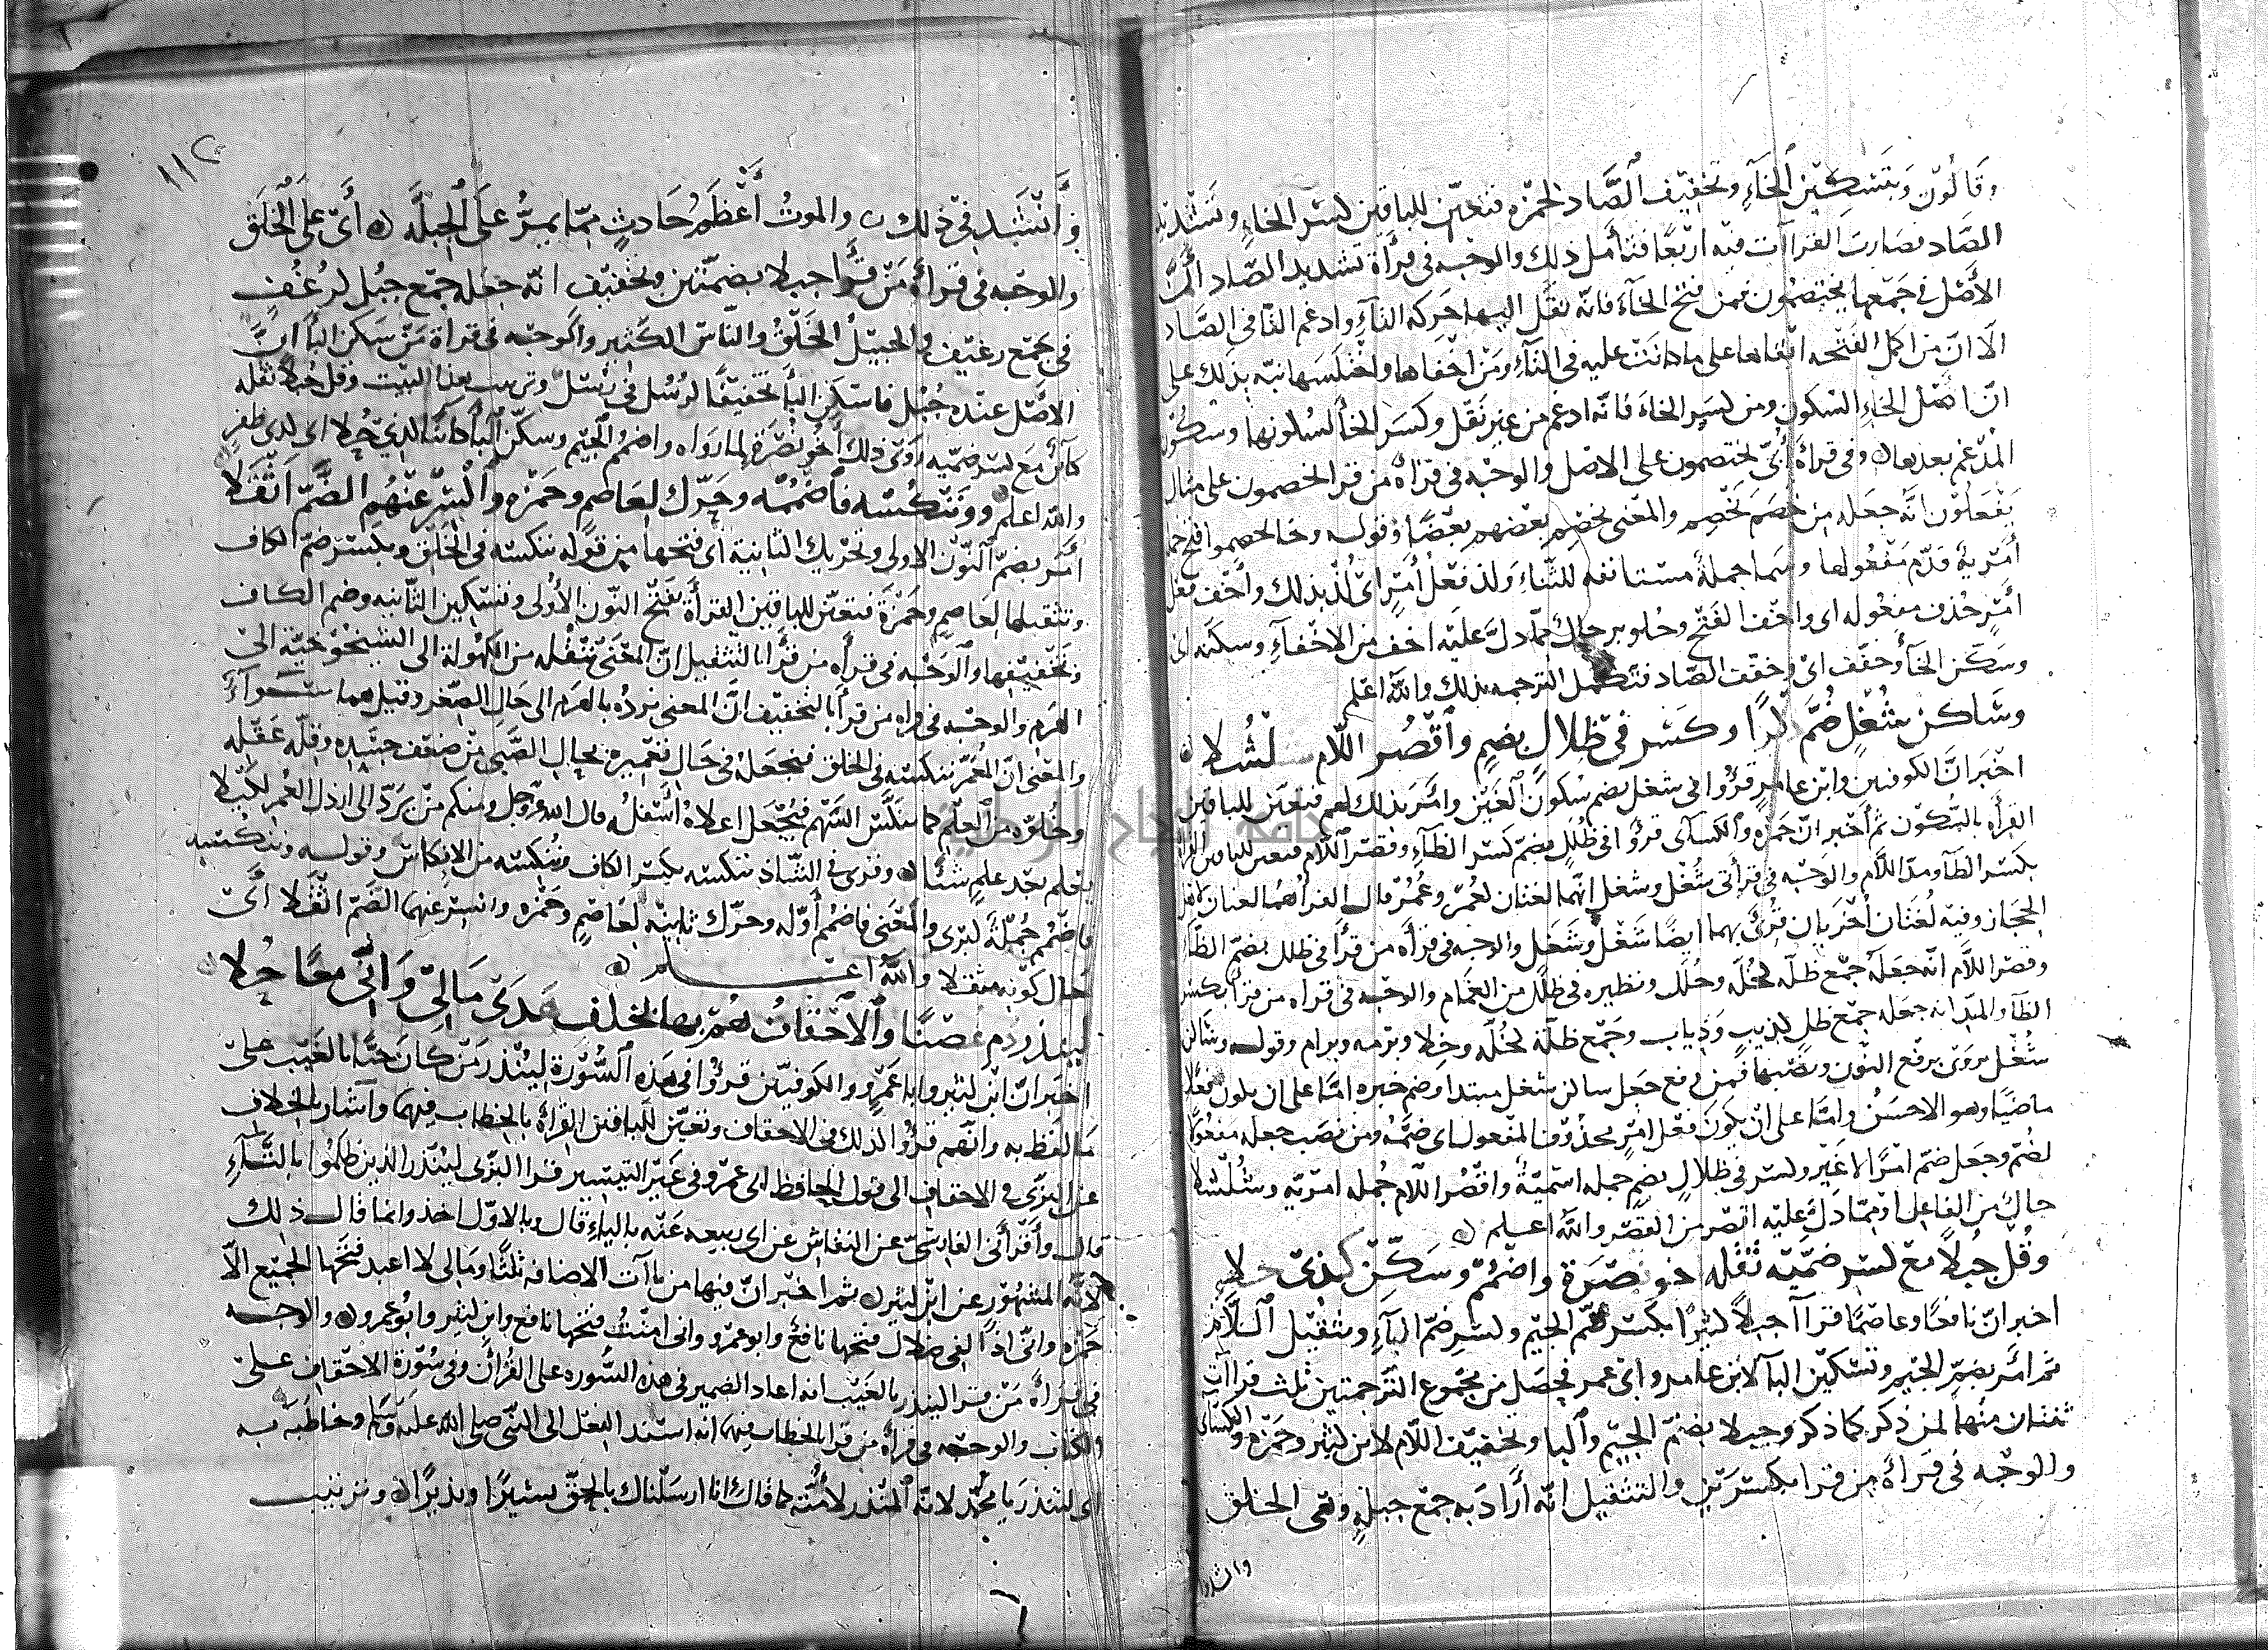 وقالون وبتسكين الخاء وتخفيف الصاد لحمزة فتعين للباقين كسر الخاء وتشديد
الصاد فصارت القراآت فيه اربعا فتأمل ذلك والوجه في قرأة تشديد الصاد أنّ
الأصل في جمعها يختصمون فمن فتح الخاء فانه نقل اليها حركة التاء وادغم التا في الصاد
الا ان من اكمل الفتحة ابقاها على ما كانت عليه في التاء ومن اخفاها واختلسها نبه بذلك على
انّ اصل الخاء السكون ومن كسر الخاء فانه ادغم من غير نقل وكسر الخا لسكونها وسكون
المدغم بعدها وفي قرأة أبيّ يختصمون على الاصل والوجه في قرأة من قرا يخصمون على مثال
يفعلون انه جعله من خصم يخصم والمعنى يخصم بعضهم بعضا وقوله وخا يخصموا افتح جملة
أمرية قدّم مفعولها وسما جملة مستانفة للثناء ولذ فعل أمر اي لذ بذلك وأخف فعل
امر حذف مفعوله اي واخف الفتح وحلو بر حال مما دل عليه اخف من الاخفاء وسكنه اي
وسكن الخا وخفف اي وخفف الصاد فتكمل الترجمة بذلك والله اعلم
وساكن شغل ضم ذكرا وكسر في ظلال بضم واقصر اللام شلشلا
اخبر انّ الكوفيين وابن عامر قرؤا في شغل بضم سكون الغين وامر بذلك لهم فتعين للباقين
القرأة بالسكون ثم أخبر انّ حمزة والكساى قرؤا في ظلل بضم كسر الظاء وقصر اللام فتعين للباقين القرأة
بكسر الظاء ومد اللام والوجه في قرأتي شغل وشغل انهما لغتان كعمر وعمر قال الفرا هما لغتان لاهل
الحجاز وفيه لغتان أخريان قرئ بهما ايضا شغل وشغل والوجه في قرأة من قرأ في ظلل بضم الظاء
وقصر اللام انه جعله جمع ظلة كحلة وحلل ونظيره في ظلل من الغمام والوجه في قراة من قرأ بكسر
الظاء والمد انه جعله جمع ظل كذيب وذياب وجمع ظلة كخلة وخلا وبرمة وبرام وقوله وساكن
شغل يروى برفع النون ونصبها فمن رفع جعل ساكن شغل مبتدا وضم خبره امّا على ان يكون فعلا
ماضيا وهو الاحسن وامّا على ان يكون فعل امر محذوف المفعول اى ضمه ومن نصب جعله مفعولا
لضم وجعل ضم امرا لا غير وكسر في ظلال بضم جملة اسمية واقصر اللام جملة امرية وشلشلا
حال من الفاعل او مما دل عليه اقصر من القصر والله اعلم
وقل جبلا مع كسر ضميه ثقله اخو نصرة واضمم وسكن كذي حلا
اخبر انّ نافعا وعاصما قرأا جبلا كثيرا بكسر ضم الجيم وكسر ضم الباء وتثقيل اللام
ثم أمر بضم الجيم وتسكين البا لابن عامر وابى عمرو فحصل من مجموع الترجمتين ثلث قراات
ثنتان منها لمن ذكر كما ذكر وجبلا بضم الجيم والبا وتخفيف اللام لابن كثير وحمزة والكساى
والوجه في قرأة من قرا بكسرتين والتثقيل انه أراد به جمع جبلة وهى الخلق
وانشدوا
١١٢
وأنشد في ذلك والموت أعظم حادث مما يمر على الجبلة أي على الخلق
والوجه في قرأة من قرأ جبلا بضمتين وتخفيف انه جعله جمع جبل كرغف
في جمع رغيف والجبيل الخلق والناس الكثير والوجه في قراة من سكن البا انّ
الاصل عنده جبل فاسكن البا تخفيفا كرسل في رسل وترتيب هذا البيت وقل جبلا ثقله
كائن مع كسر ضميه روى ذلك أخو نصرة لما رواه واضمم الجيم وسكن البا كائنا كذي حلا اى لذى ظفر
والله اعلم وننكسه فاضممه وحرك لعاصم وحمزة واكسر عنهم الضم اثقلا
أمر بضم النون الاولى وتحريك الثانية اى فتحها من قوله ننكسه في الخلق وبكسر ضم الكاف
وتثقيلها لعاصم وحمزة فتعين للباقين القرأة بفتح النون الأولى وتسكين الثانية وضم الكاف
وتخفيفها والوجه في قرأه من قرا بالتثقيل ان المعنى ننقله من الكهولة الى الشيخوخية الى
الهرم والوجه في قراه من قرأ بالتخفيف ان المعنى نرده بالهرم الى حال الصغر وقيل هما سواء
والمعنى ان المعمر ننكسه في الخلق فنجعله في حال تعميره بحال الصبي من ضعف جسده وقلة عقله
وخلوّه من العلم كما ينكس السهم فيجعل اعلاه أسفله قال الله عز وجل ومنكم من يرد الى ارذل العمر لكيلا
يعلم بعد علم شيئا وقرى في الشاذ ننكسه بكسر الكاف وننكسه من الانكاس وقوله وننكسه
فاضممه جملة كبرى والمعنى فاضمم أوله وحرك ثانيه لعاصم وحمزة واكسر عنهما الضم اثقلا أي
حال كونه مثقلا والله اعلم
لينذر دم غصنا والاحقاف هم بها بخلف هدى مالي وإني معا حلا
اخبر انّ ابن كثير وابا عمرو والكوفيين قرؤا في هذه السورة لينذر من كان حيا بالغيب على
ما لفظ به وانهم قرؤا كذلك في الاحقاف وتعين للباقين القرأة بالخطاب فيهما وأشار بالخلاف
عن البزي في الاحقاف الى قول الحافظ ابى عمرو في غير التيسير قرا البزى لينذر الذين ظلموا بالتاء
قال وأقرأنى الفارسي عن النقاش عن ابى ربيعة عنه بالياء قال وبالاول اخذ وانما قال ذلك
لانه المشهور عن ابن كثير ثم اخبر انّ فيها من ياآت الاضافة ثلثا ومالى لا اعبد فتحها الجميع الّا
حمزة وانى اذا لفي ضلال فتحها نافع وابو عمرو وانى امنت فتحها نافع وابن كثير وابو عمرو والوجه
في قرأة من قرا لينذر بالغيب انه اعاد الضمير في هذه السورة على القرآن وفي سورة الاحقاف على
الكتاب والوجه في قرأة من قرا بالخطاب فيهما انه اسند الفعل الى النبي صلى الله عليه وسلم وخاطبه به
اى لتنذر يا محمد لانه المنذر لامته كما قال انا ارسلناك بالحق بشيرا ونذيرا وترتيب